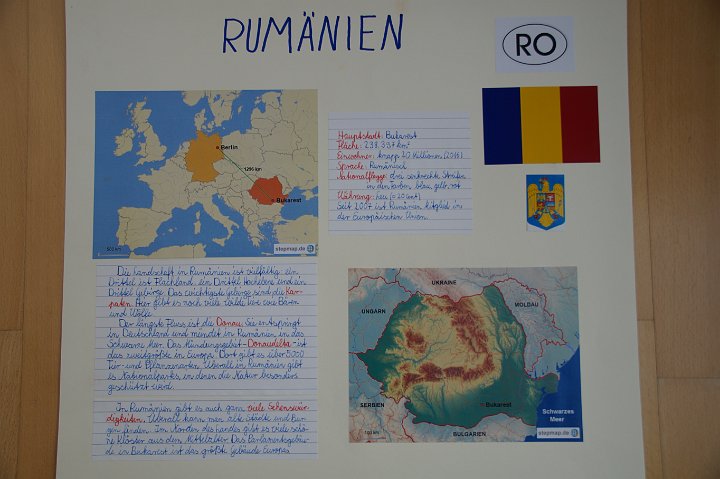 RUMÄNIEN
RO
Berlin
1296 km
Bukarest
500 km
stepmap.de
Hauptstadt: Bukarest
Fläche: 238.397 km²
Einwohner: knapp 20 Millionen (2016)
Sprache: Rumänisch
Nationalflagge: drei senkrechte Streifen
in den Farben blau, gelb, rot
Währung: Leu (= 20 Cent)
Seit 2007 ist Rumänien Mitglied in
der Europäischen Union.
Die Landschaft in Rumänien ist vielfältig: ein
Drittel ist Flachland, ein Drittel Hochebene und ein
Drittel Gebirge. Das wichtigste Gebirge sind die Kar-
paten. Hier gibt es noch viele wilde Tiere wie Bären
und Wölfe.
Der längste Fluss ist die Donau. Sie entspringt
in Deutschland und mündet in Rumänien in das
Schwarze Meer. Das Mündungsgebiet - Donaudelta - ist
das zweitgrößte in Europa. Dort gibt es über 5000
Tier- und Pflanzenarten. Überall in Rumänien gibt
es Nationalparks, in denen die Natur besonders
geschützt wird.
In Rumänien gibt es auch ganz viele Sehenswür-
digkeiten. Überall kann man alte Städte und Bur-
gen finden. Im Norden des Landes gibt es viele schö-
ne Klöster aus dem Mittelalter. Das Parlamentsgebäu-
de in Bukarest ist das größte Gebäude Europas.
UKRAINE
UNGARN
MOLDAU
SERBIEN
Bukarest
Schwarzes
Meer
100 km
BULGARIEN
stepmap.de